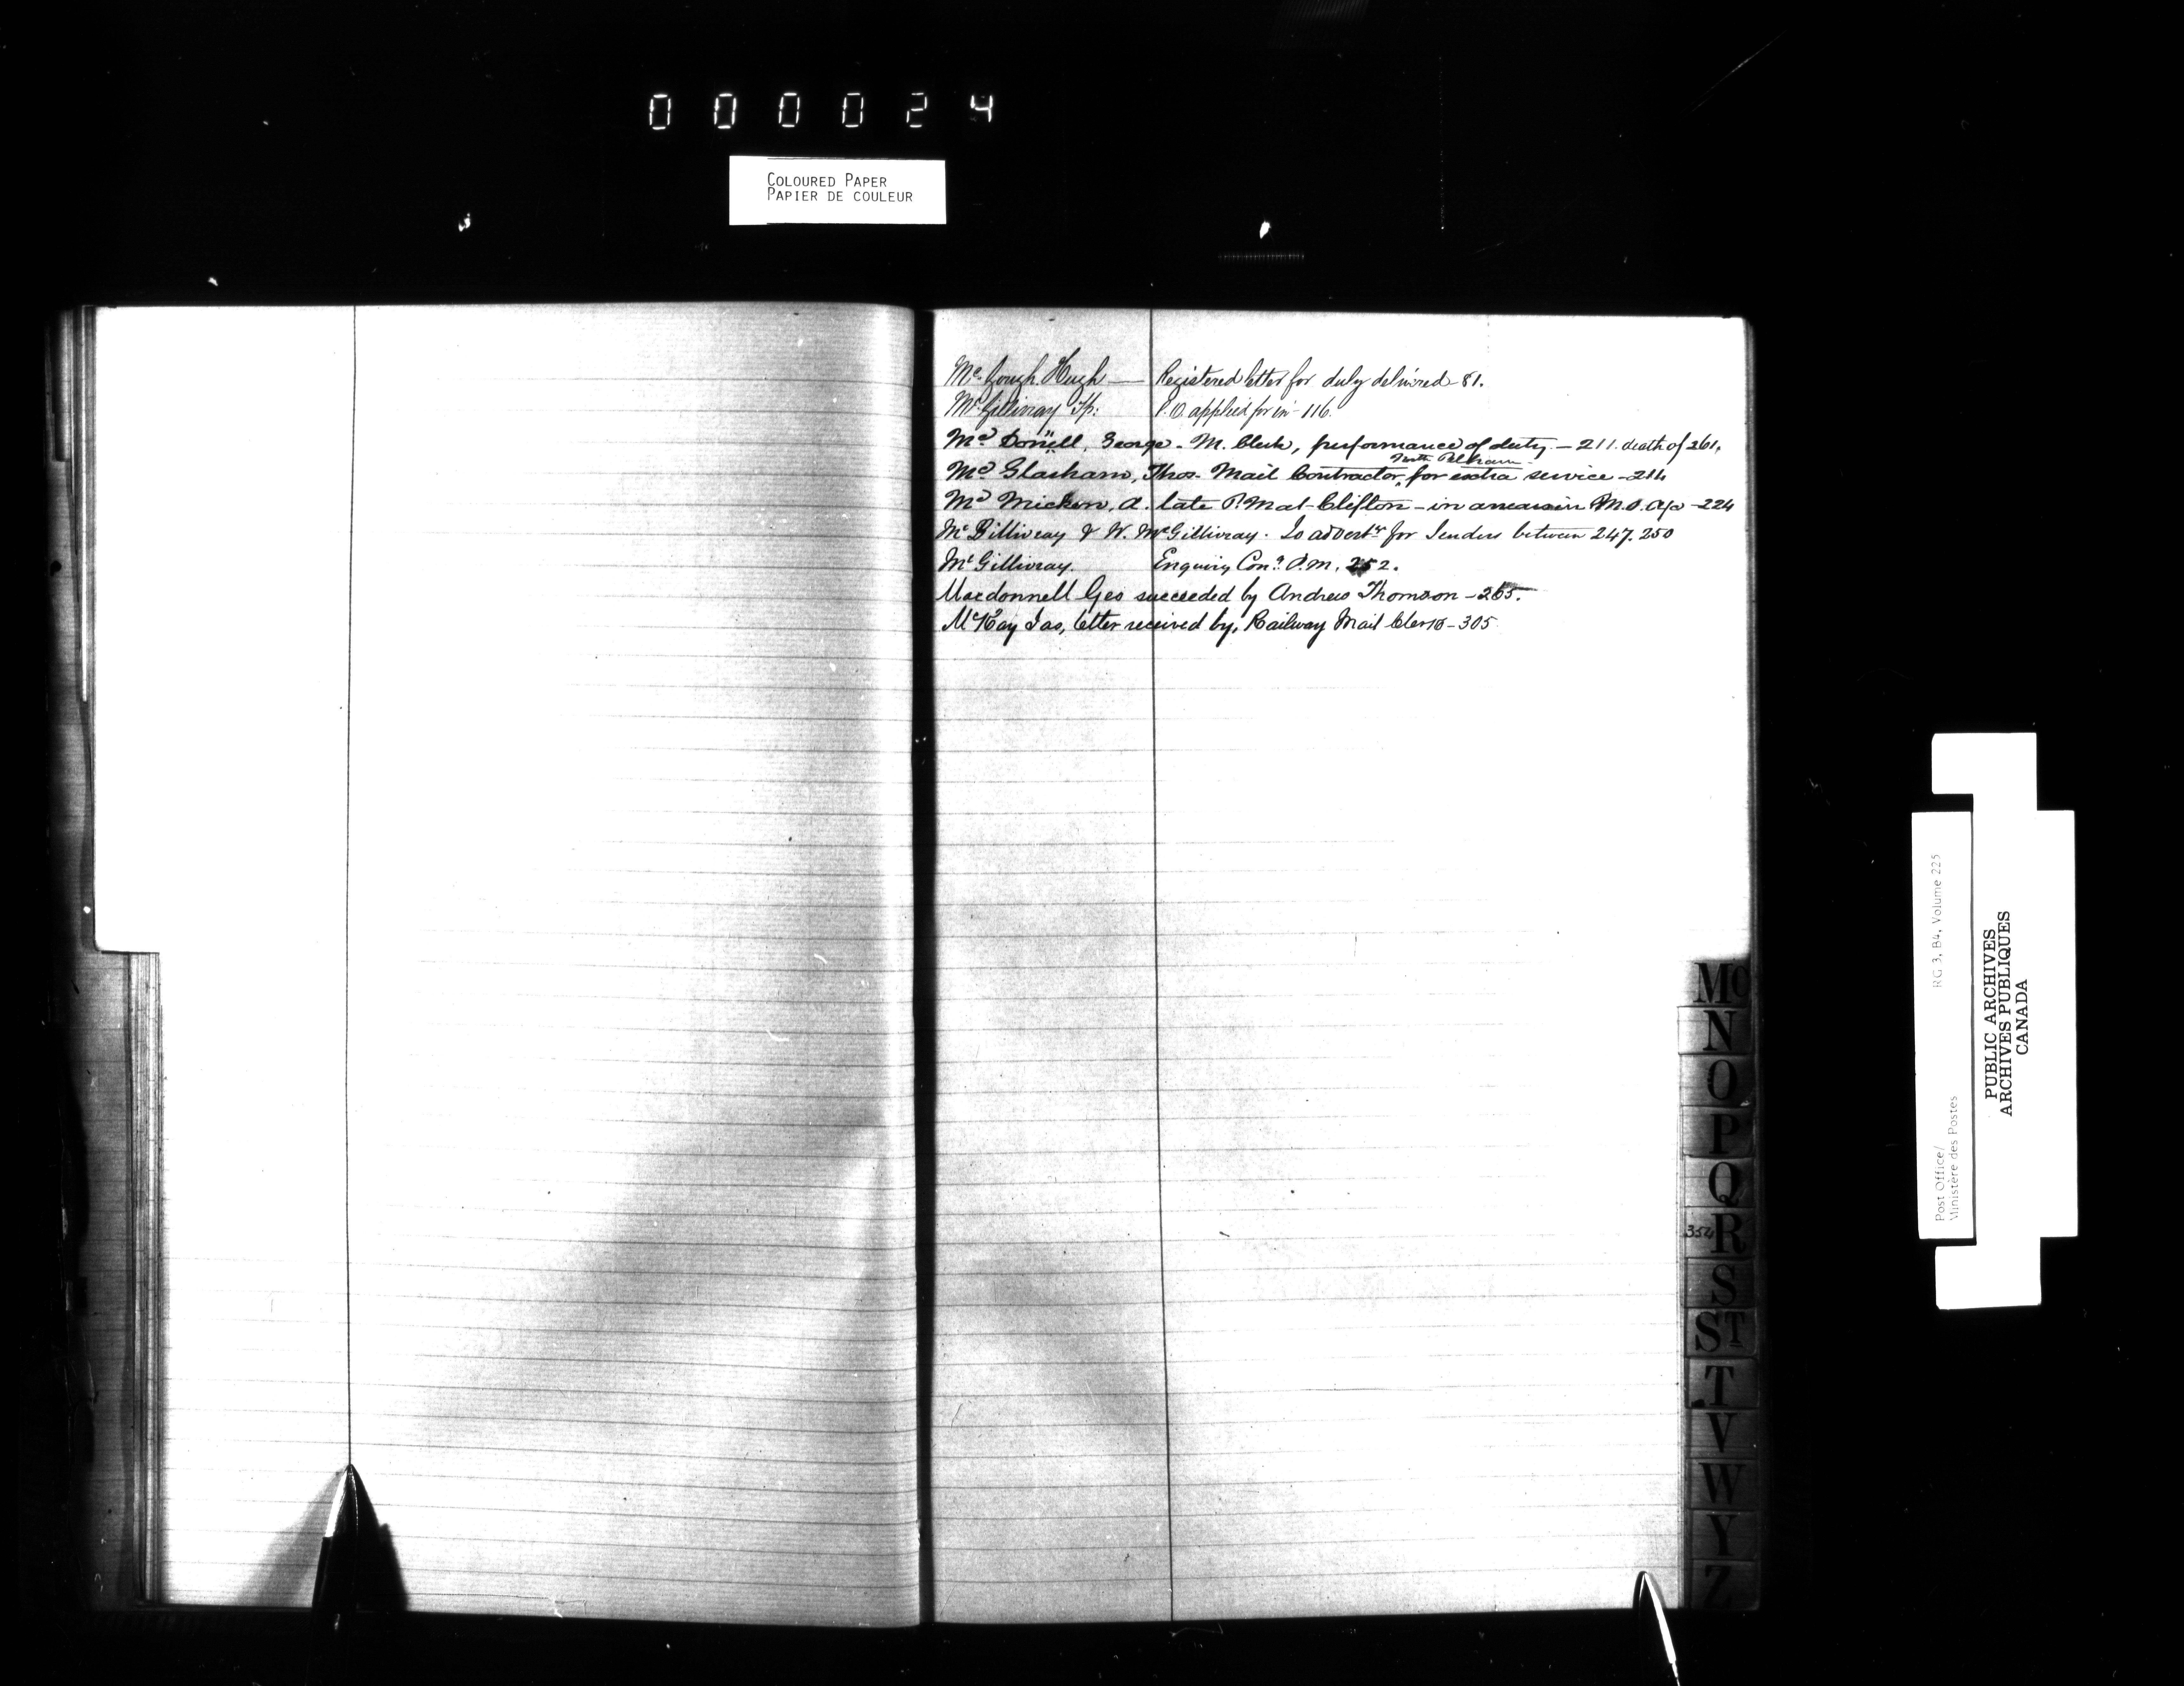 000024
COLOURED PAPER
PAPIER DE COULEUR
Mc. Gough. Hugh — Registered letter for duly delivered - 81.
McGillivray Tp. P.O. applied for in - 116.
Mc Donell, George - M. Clerk, performance of duty. - 211. death of 261.
North Pelham
Mc Glashan, Thos. Mail Contractor, for extra service - 214
Mc Micken, A. late P. M at Clifton - in arrears in M.O. a/c - 224
McGillivray & W. McGillivray. To advert for Tenders between 247. 250
McGillivray. Enquiry Con. P.M. 252.
Macdonnell Geo succeeded by Andrew Thomson - 265.
McKay Jas, letter received by, Railway Mail Clerk - 305
MC
N
O
P
Q
354 R
S
ST
T
V
W
Y
Z
Post Office/ RG 3, B4, Volume 225
Ministère des Postes
PUBLIC ARCHIVES
ARCHIVES PUBLIQUES
CANADA